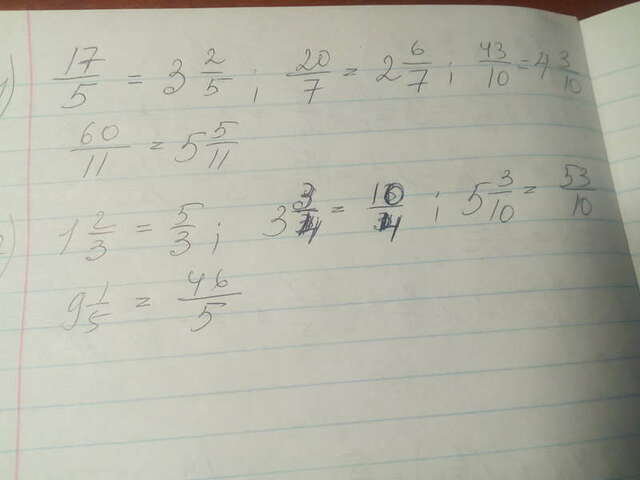 1) 17/5 = 3 2/5 ; 20/7 = 2 6/7 ; 43/10 = 4 3/10
60/11 = 5 5/11
2) 1 2/3 = 5/3 ; 3 /4 = /4 ; 5 3/10 = 53/10
9 1/5 = 46/5